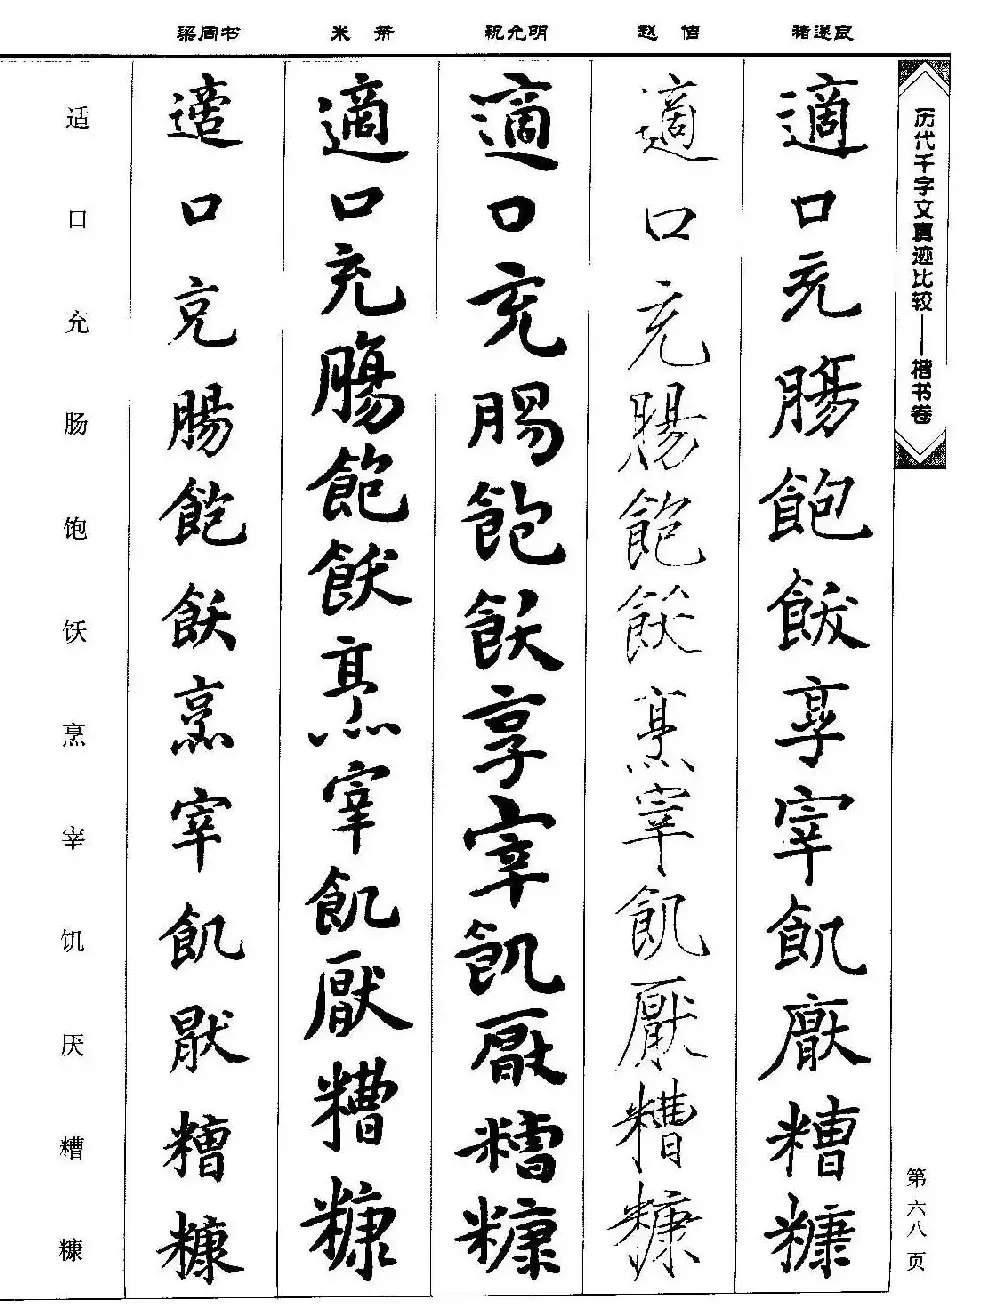 历代千字文真迹比较——楷书卷
第六八页
褚遂良
適口充腸飽飫享宰飢厭糟糠
赵佶
適口充腸飽飫烹宰飢厭糟糠
祝允明
適口充腸飽飫享宰飢厭糟糠
米芾
適口充腸飽飫烹宰飢厭糟糠
梁同书
適口充腸飽飫烹宰飢猒糟糠
适口充肠饱饫烹宰饥厌糟糠